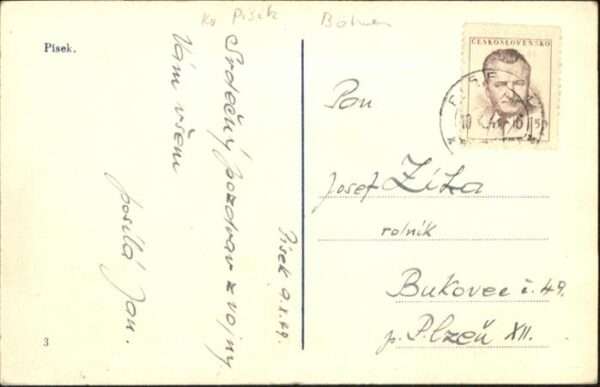 Kr Písek
Bohmen
Písek.
Srdečný pozdrav z vojny
Vám všem
posílá Jan.
Písek 9.X.49.
3
ČESKOSLOVENSKO
Pan
Josef Zíka
rolník
Bukovec č. 49.
p. Plzeň XII.